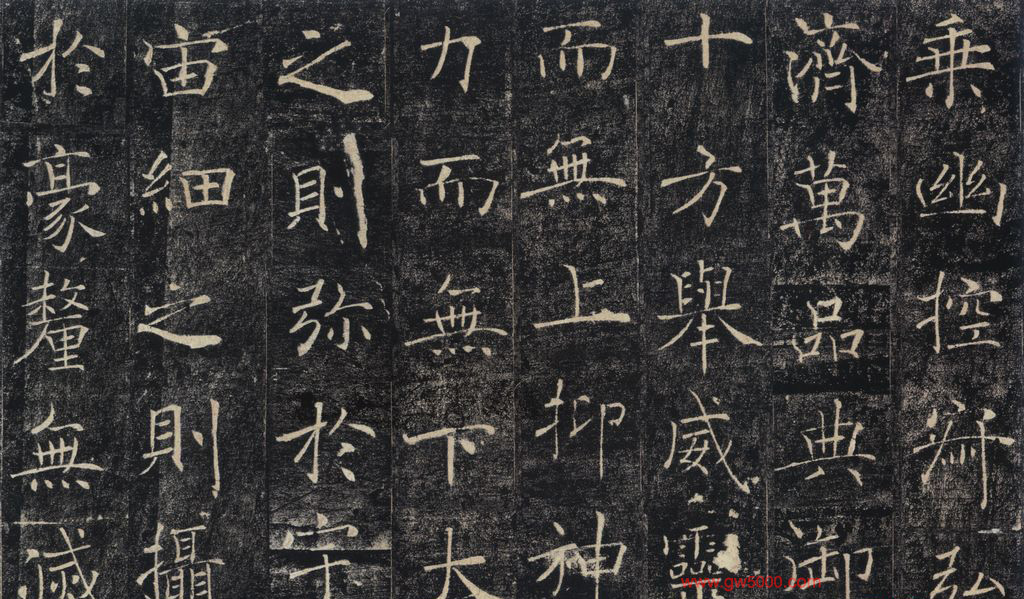 乘幽控寂弘
濟萬品典御
十方舉威靈
而無上抑神
力而無下大
之則弥於宇
宙細之則攝
於豪釐無滅
www.gw5000.com